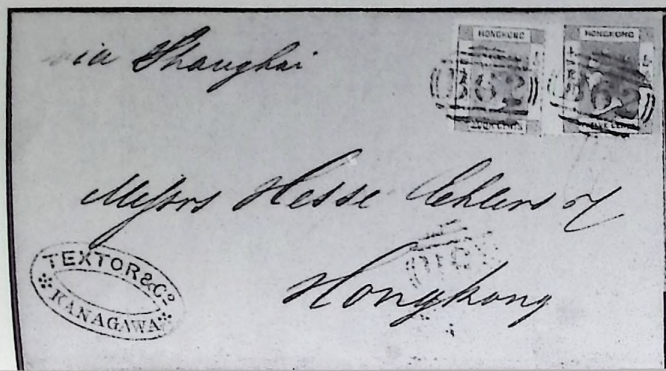 via Shanghai
HONGKONG
HONGKONG
B62
B62
Messrs Hesse Ehlers &
Hongkong
TEXTOR & Co
KANAGAWA